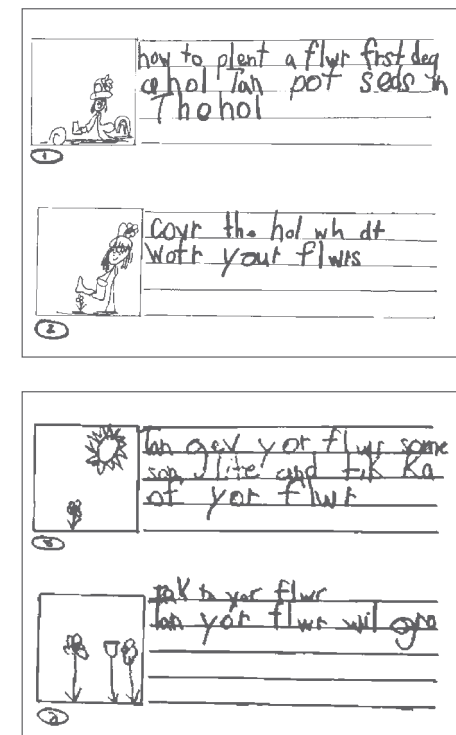 how to plent a flwr frst deg
a hol Tan pot seds in
The hol
1
covr the hol wh dt
Watr your flwrs
2
Tan gev yor flwr some
son lite and tak Ka
of yor flwr
tak to yor flwr
Tan yor flwr wil gro